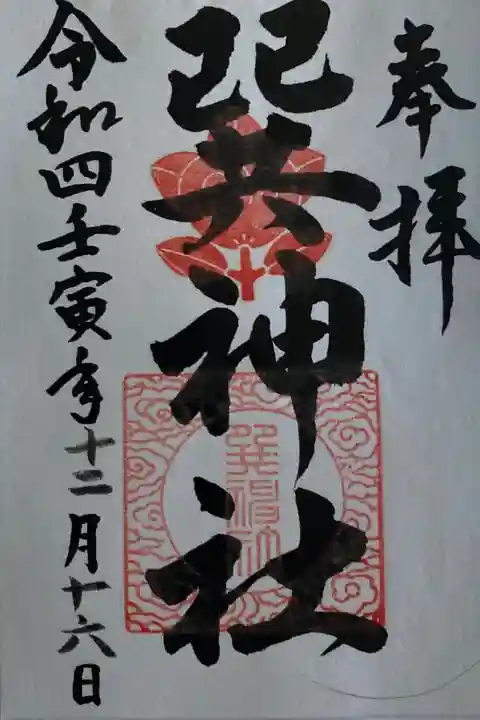 奉拝
巽神社
令和四壬寅年十二月十六日
巽神社